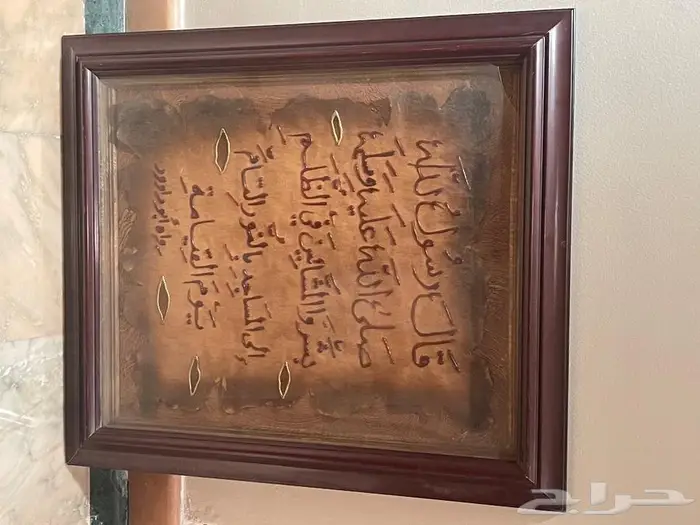 قال رسول الله
صلى الله عليه وسلم
بشروا المشائين في الظلم
إلى المساجد بالنور التام
يوم القيامة
رواه أبو داود
حراج